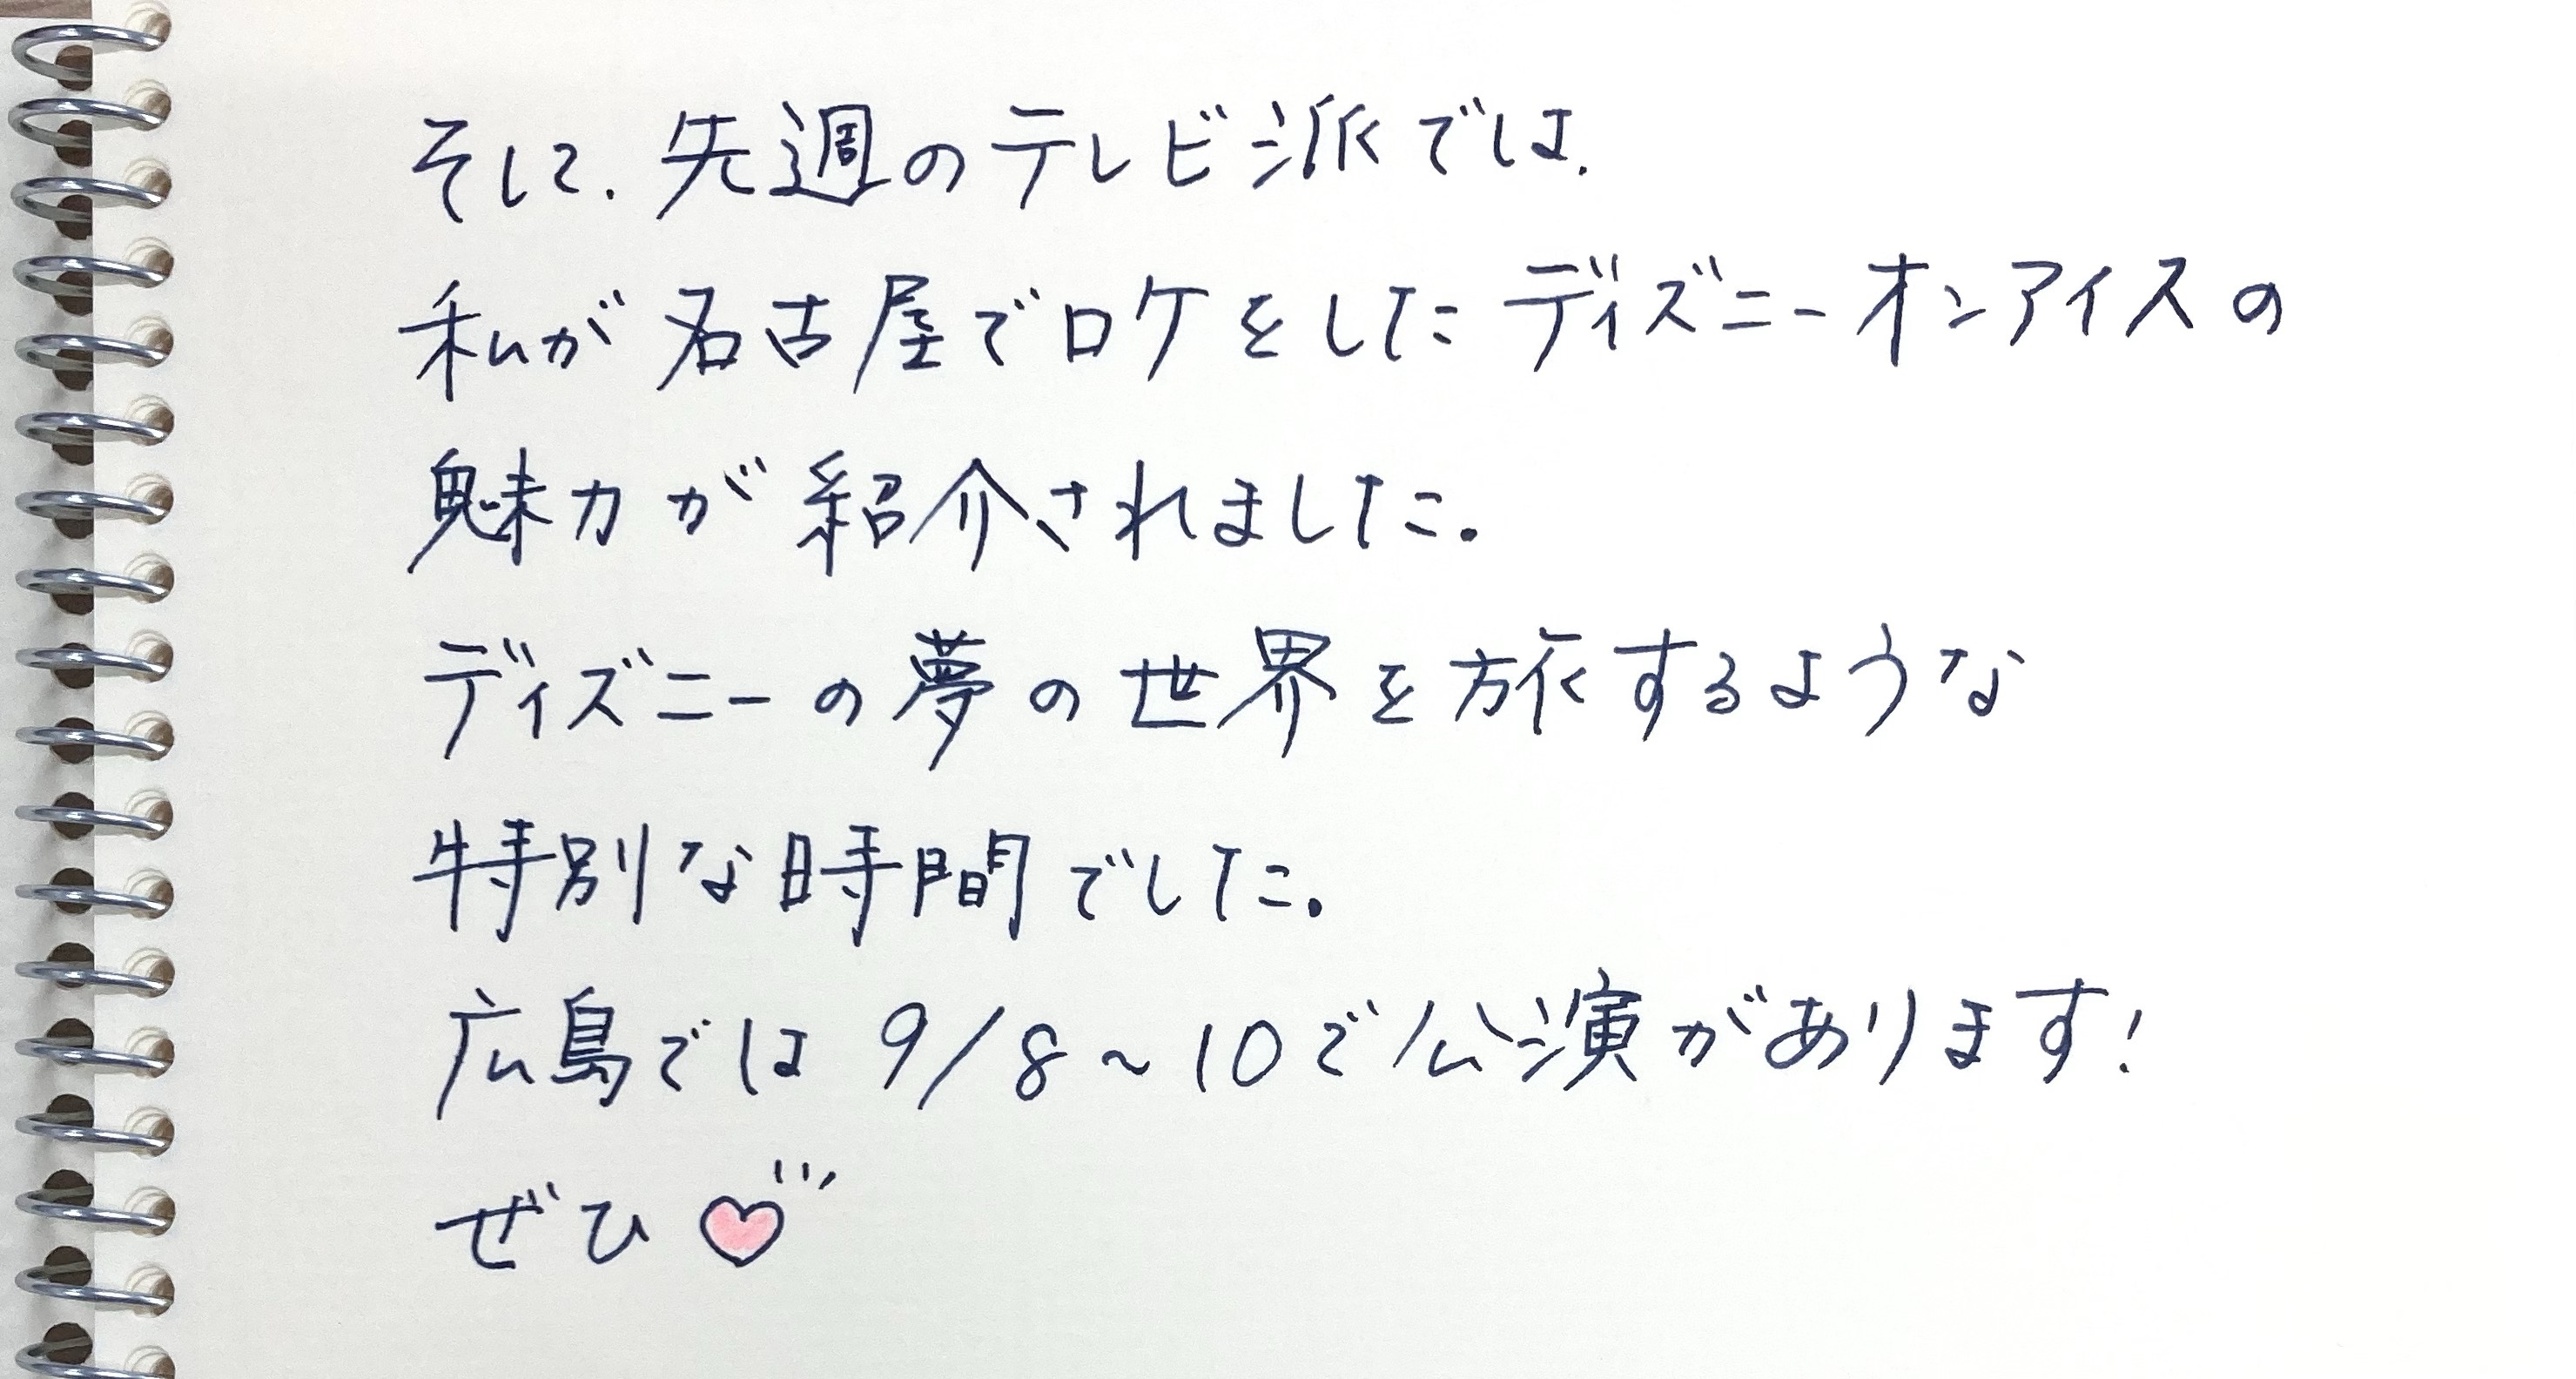 そして、先週のテレビ派では、
私が名古屋でロケをしたディズニーオンアイスの
魅力が紹介されました。
ディズニーの夢の世界を旅するような
特別な時間でした。
広島では 9/8~10で公演があります!
ぜひ♡